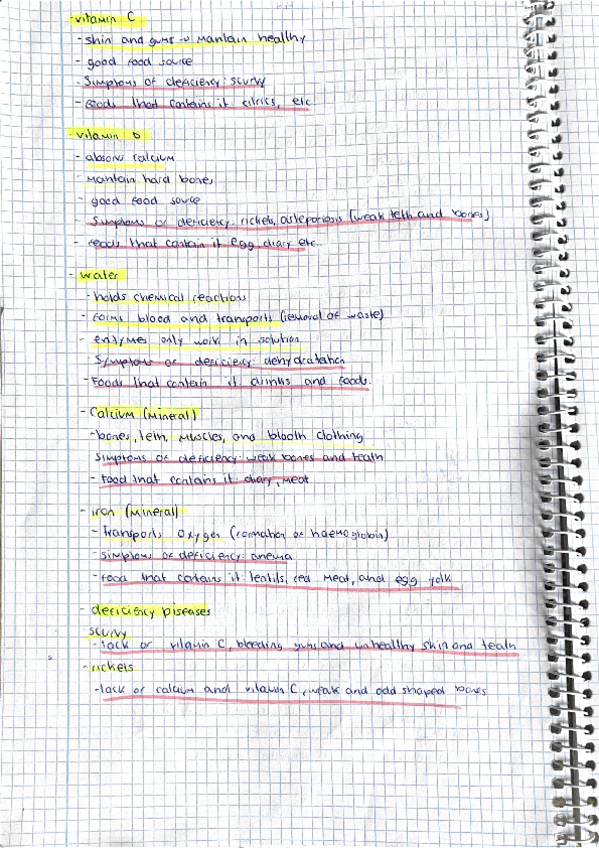 - vitamin C
- skin and gums → mantain healthy
- good food source
- Simptoms of deficiency: scurvy
- Foods that contains it citrics, etc
- vitamin D
- absorv calcium
- mantain hard bones
- good food source
- Simptoms of deficiency: rickets, osteporiosis (weak teth and bones)
- Foods that contain it egg diary etc.
- water
- holds chemical reactions
- forms blood and transports (removal of waste)
- enzymes only work in solution
- Symptoms of deficiency: dehydratation
- Foods that contain it drinks and foods.
- Calcium (Mineral)
- bones, teth, muscles, and blooth clothing
Simptoms of deficiency: weak bones and teath
- Food that contains it diary, meat
- iron (mineral)
- transports oxygen (formation of haemoglobin)
- simptoms of deficiency: anemia
- food that contains it: lentils, red meat, and egg yolk
- deficiency diseases
scurvy
- lack of vitamin C, bleeding gums and unhealthy skin and teath
- rickets
- lack of calcium and vitamin C, weak and odd shaped bones